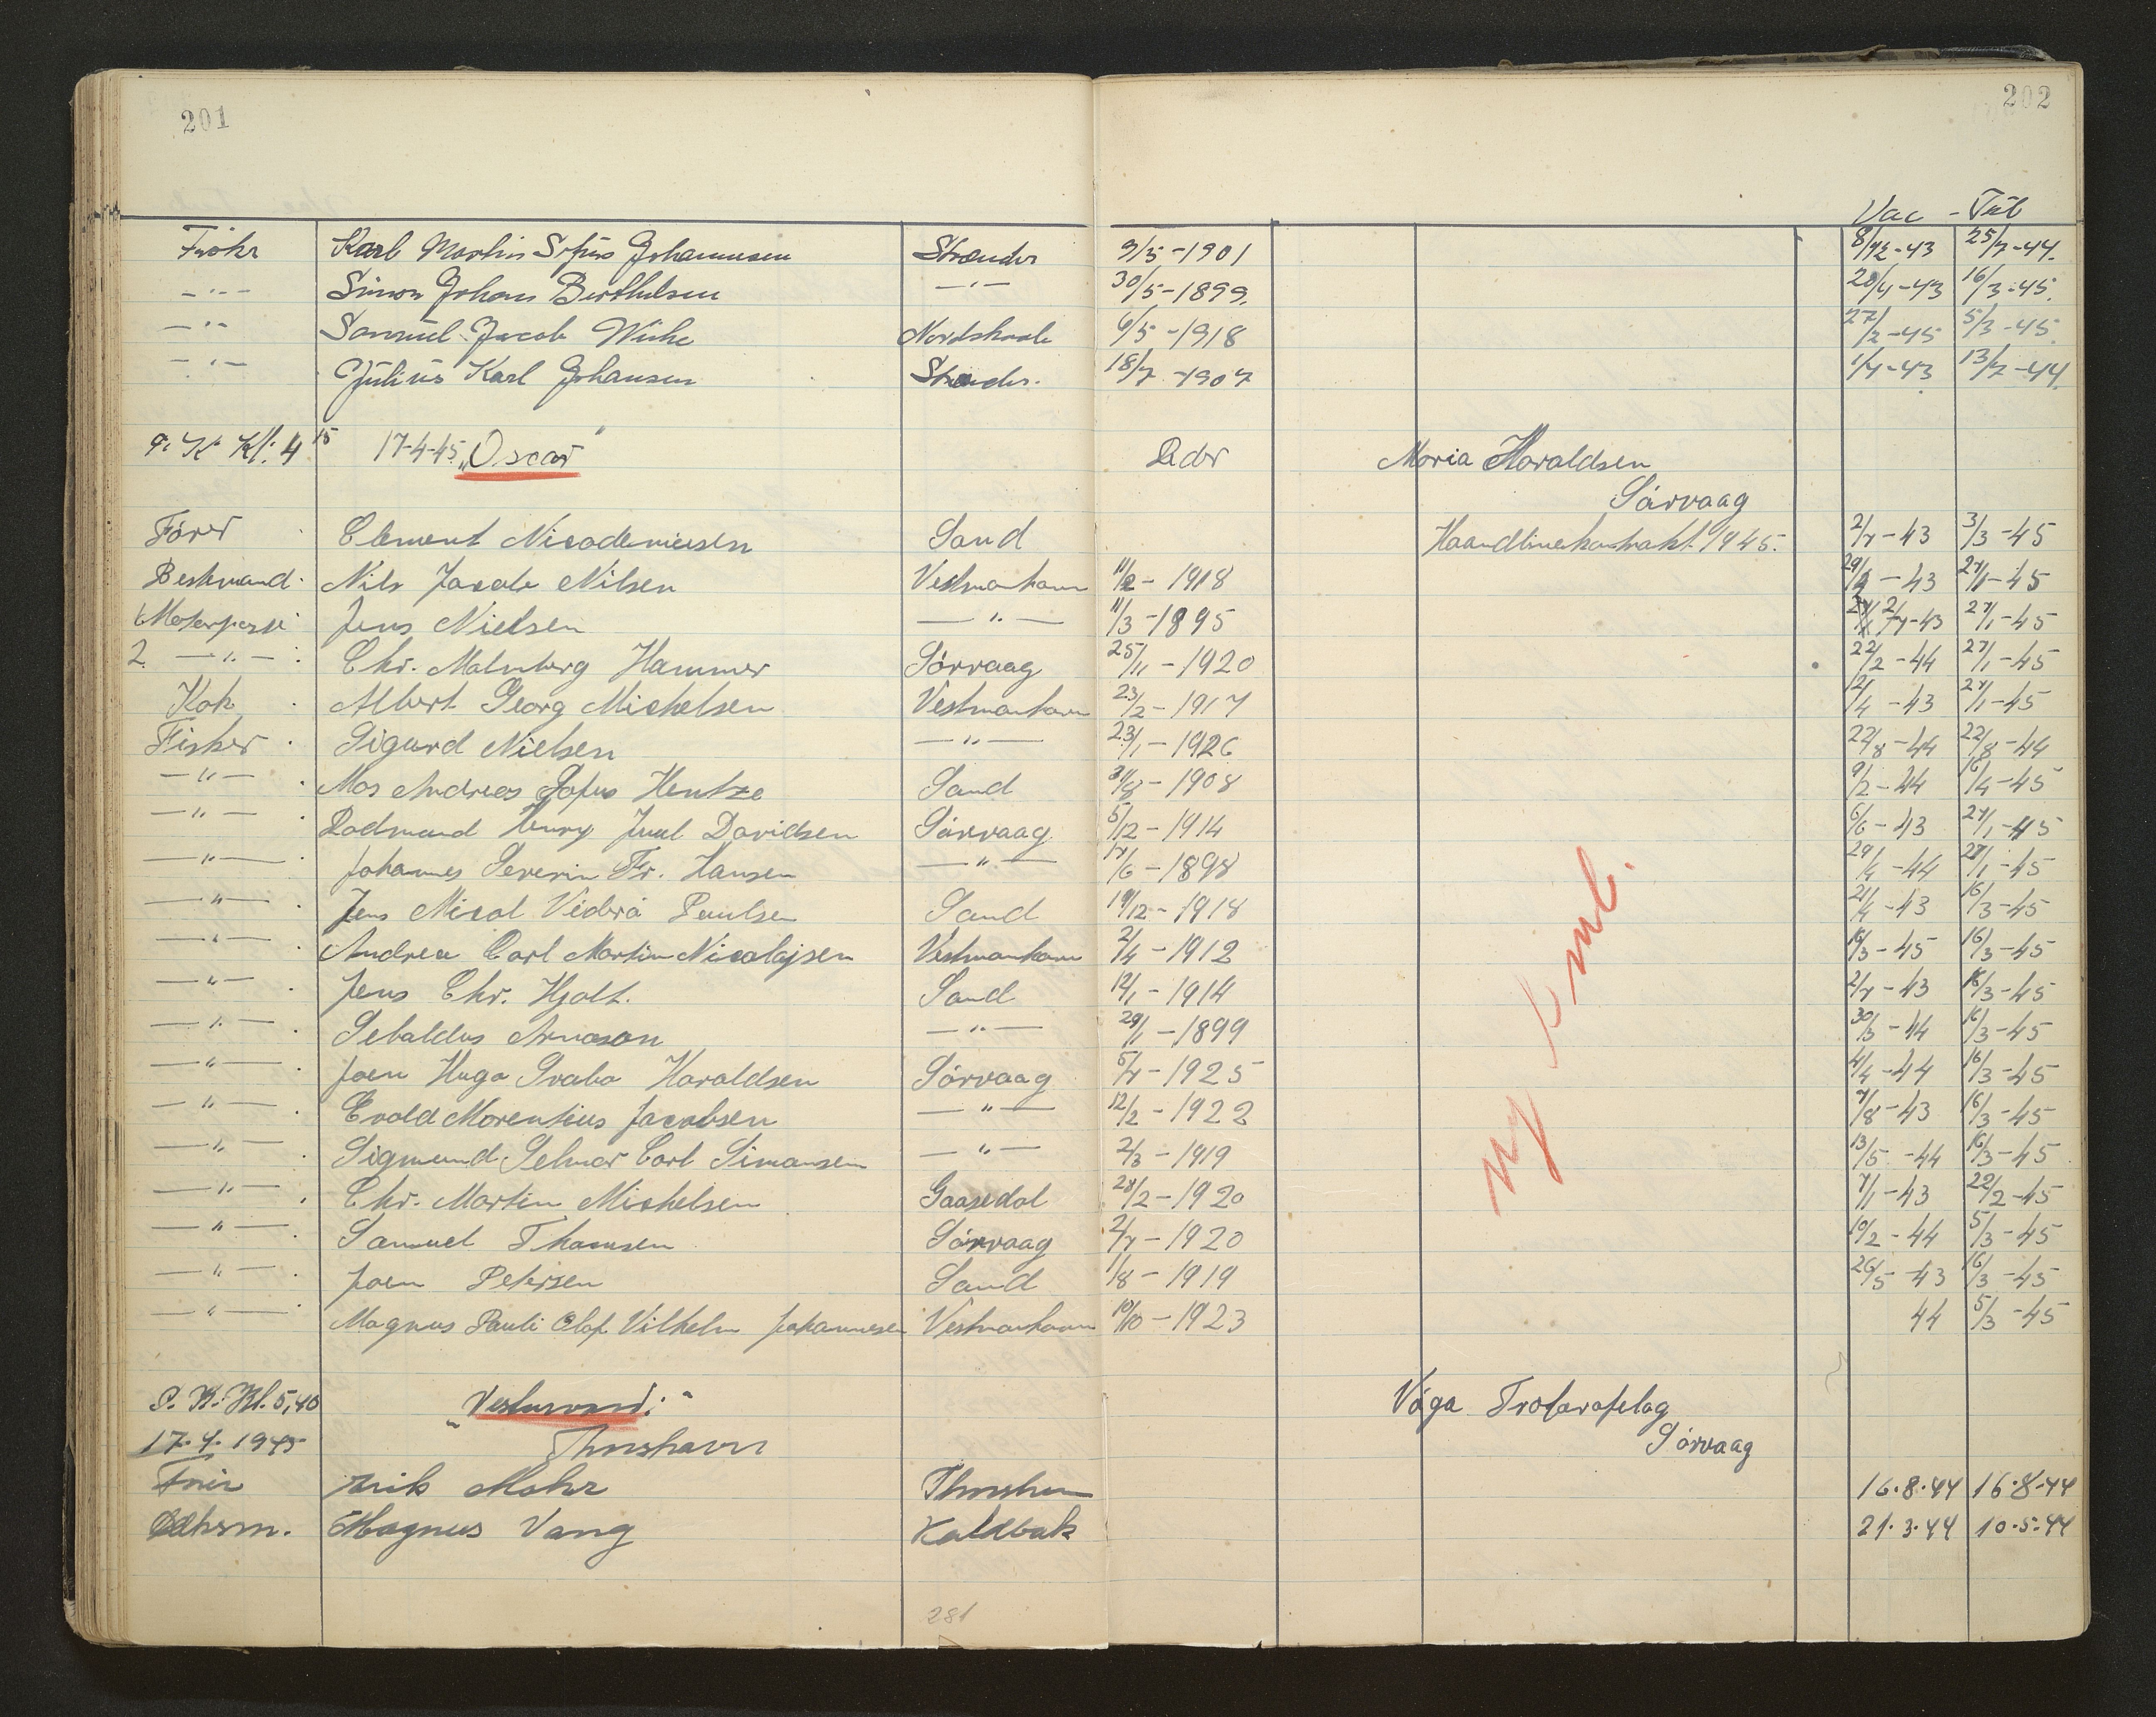 201
202
Vac - Tüb
Fisker Karl Martin Sofus Johannesen Strænder 9/5-1901 8/12-43 25/7-44.
-"- Simon Johan Berthelsen -"- 30/5-1899. 20/4-43 16/3-45.
-"- Samuel Jacob Wiche Nordskaale 6/5-1918 27/2-45 5/3-45
-"- Julius Karl Johansen Strænder. 18/7-1907 1/4-43 13/7-44.
P. K Kl. 4 15 17-4-45 "Oscar" Reder Maria Haraldsen
Sörvaag
Förer Clement Nicodemussen Sand Haandlinekontrakt 1945. 2/7-43 3/3-45
Bestmand. Nils Jacob Nilsen Vestmanhavn 11/2-1918 29/1-43 27/1-45
1 Motorpass Jens Nielsen -"- 11/3-1895 2/7-43 27/1-45
2. -"- Chr. Malmberg Hammer Sörvaag 25/11-1920 22/2-44 27/1-45
Kok Albert Georg Michelsen Vestmanhavn 23/2-1917 12/4-43 27/1-45
Fisker Sigurd Nielsen -"- 23/1-1926 22/8-44 22/8-44
-"- Mas Andreas Sofus Hentze Sand 31/8-1908 9/2-44 16/4-45
-"- Radmund Henry Juul Davidsen Sörvaag 5/12-1914 6/6-43 27/1-45
-"- Johannes Severin Fr. Hansen -"- 17/6-1898 29/4-44 27/1-45
-"- Jens Nicol Viderö Paulsen Sand 19/12-1918 21/4-43 16/3-45
-"- Andrea Carl Martin Nicolajsen Vestmanhavn 2/4-1912 16/3-45 16/3-45
-"- Jens Chr. Hjalt. Sand 12/1-1914 2/7-43 16/3-45
-"- Sebaldus Arnason -"- 29/1-1899 30/3-44 16/3-45
-"- Joen Hugo Svabo Haraldsen Sörvaag 5/7-1925 4/4-44 16/3-45
-"- Evald Morentius Jacobsen -"- 12/2-1922 7/8-43 16/3-45
-"- Sigmund Selmar Carl Simonsen -"- 2/3-1919 13/5-44 16/3-45
-"- Chr. Martin Michelsen Gaasedal 28/2-1920 7/1-43 22/2-45
-"- Samuel Thomsen Sörvaag 2/7-1920 10/2-44 5/3-45
-"- Joen Petersen Sand 1/8-1919 26/5-43 16/3-45
-"- Magnus Pauli Olaf Vilhelm Johannesen Vestmanhavn 10/10-1923 44 5/3-45
P. K. Kl. 5,40 "Vesturvard." Vága Trolarafelag
17.4.1945 Thorshavn Sörvaag
Förer Erik Mohr Thorshavn 16.8.44 16.8.44
Magnus Vang Kaldbak 21.3.44 10.5.44
281